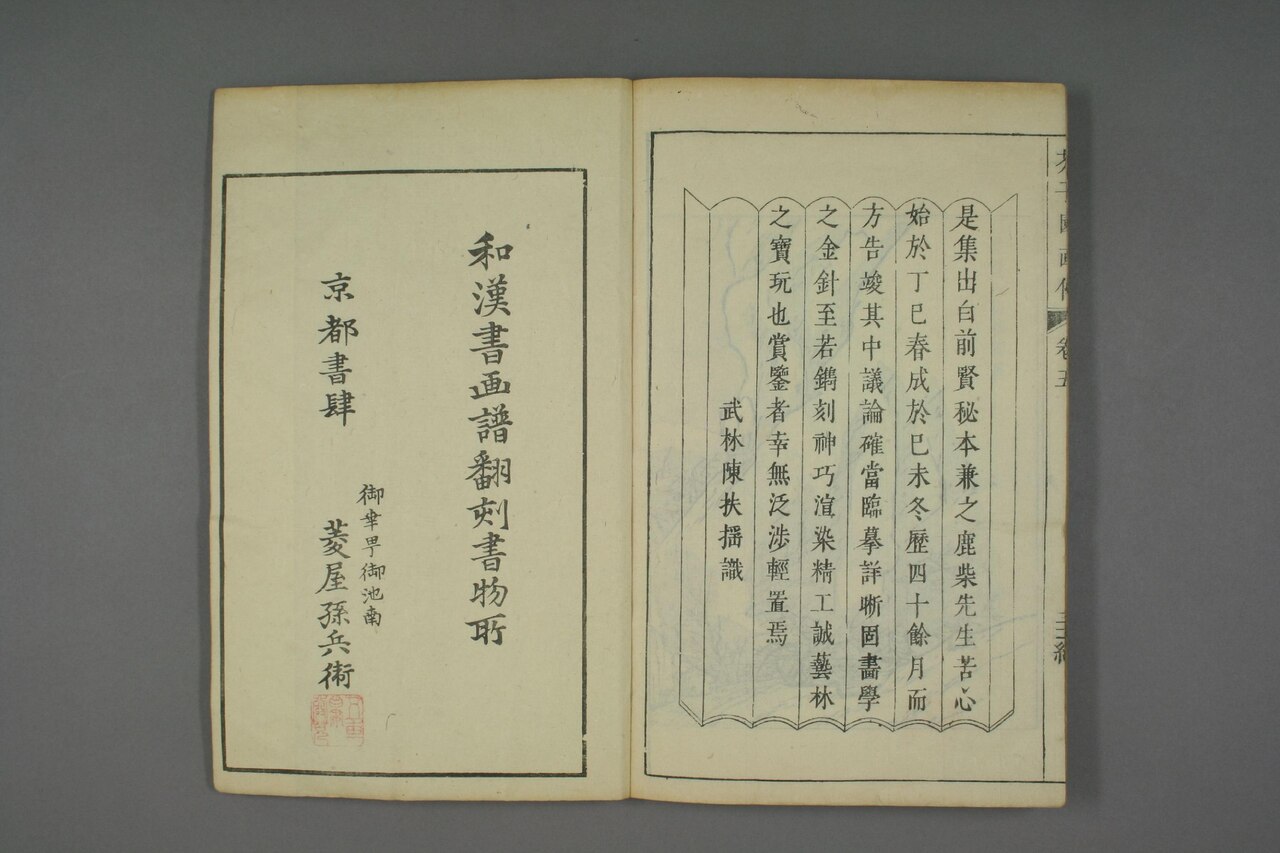 是集出自前賢秘本兼之鹿柴先生苦心
始於丁巳春成於巳未冬歷四十餘月而
方告竣其中議論確當臨摹詳晰固畵學
之金針至若鐫刻神巧渲染精工誠藝林
之寶玩也賞鑒者幸無泛渉輕置焉
武林陳扶揺識
卷五
和漢書画譜翻刻書物所
御幸町御池南
京都書肆
菱屋孫兵衛